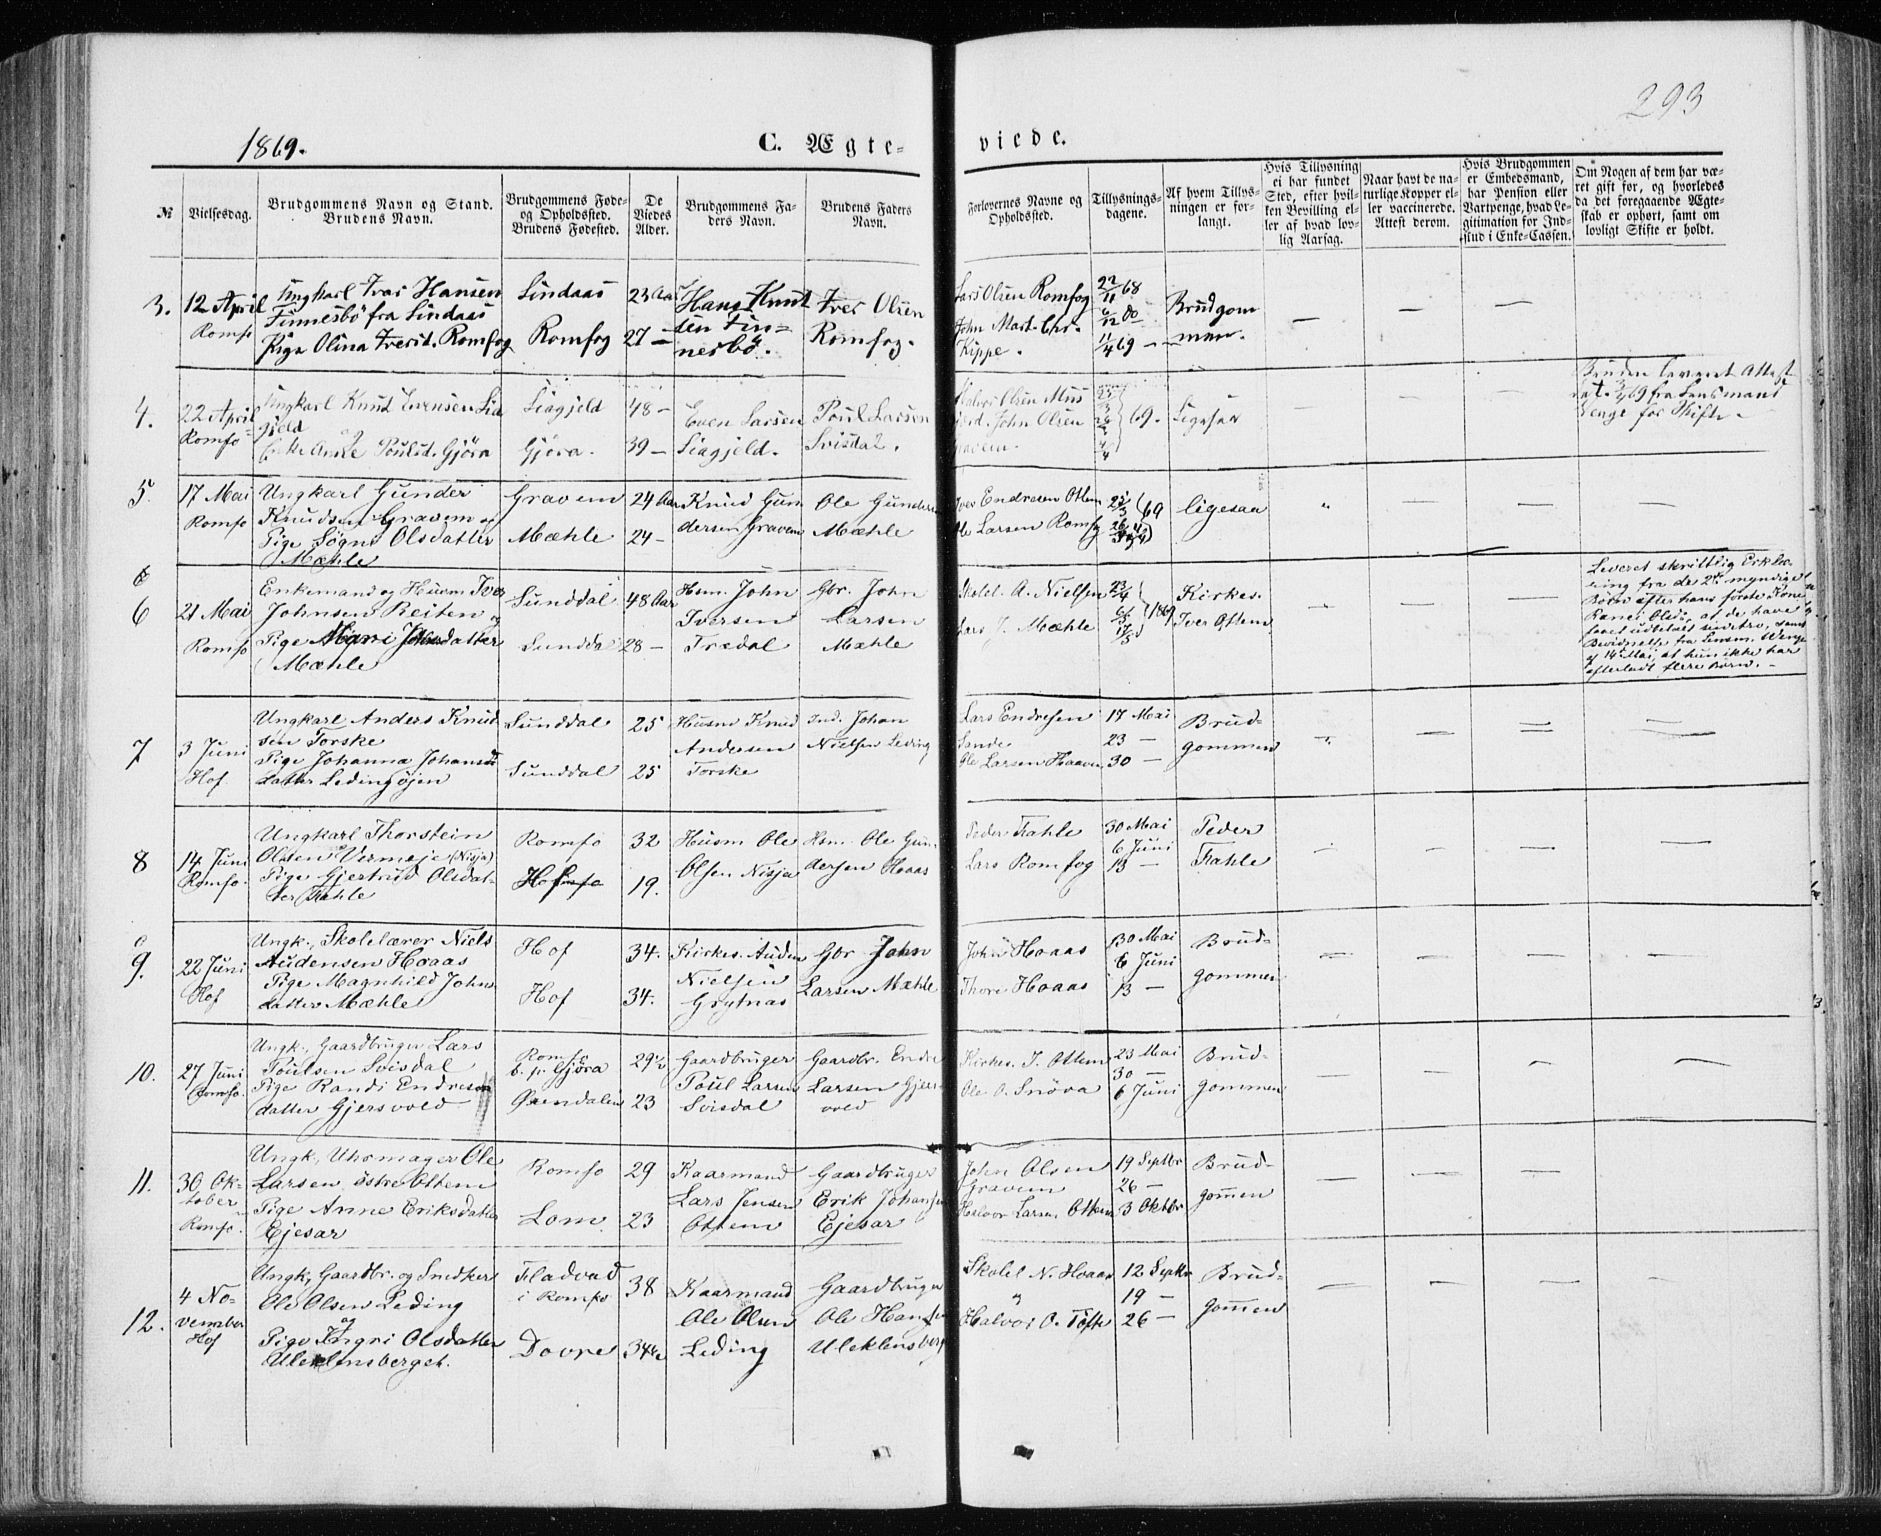 293
1869.
C. Ægte-
viede.
№
Vielsesdag.
Brudgommens Navn og Stand.
Brudens Navn.
Brudgommens Føde-
og Opholdssted.
Brudens Fødested.
De
Viedes
Alder.
Brudgommens Fa-
ders Navn.
Brudens Faders
Navn.
Forlovernes Navne og
Opholdssted.
Tillysnings-
dagene.
Af hvem Tillys-
ningen er for-
langt.
Hvis Tillysning
ei har fundet
Sted, efter hvil-
ken Bevilling el-
ler af hvad lov-
lig Aarsag.
Naar havt de na-
turlige Kopper el-
ler vaccinerede.
Attest derom.
Hvis Brudgommen
er Embedsmand,
har Pension eller
Vartpenge, hvad Le-
gitimation for Ind-
skud i Enke-Cassen.
Om Nogen af dem har væ-
ret gift før, og hvorledes
da det foregaaende Ægte-
skab er ophørt, samt om
lovligt Skifte er holdt.
3.
12 April
Romfo
Ungkarl Ivar Hansen
Finnesbö fra Lindaas
Pige Olina Iversd. Romfog
Lindaas
Romfog
23 Aar
27 —
Hans Knut
sen Fin=
nesbö.
Iver Olsen
Romfog.
Lars Olsen Romfog
John Mart. Chr.
Kippe.
22/11 68
6/12 do
11/4 69 —
Brudgom
men.
—
—
—
4.
22 April
Romfo
Ungkarl Knud Evensen Lia
gjeld
og
Enke Anne Poulsd. Gjöra
Liagjeld
Gjöra.
48 —
39 —
Even Larsen
Liagjeld.
Poul Larsen
Svisdal.
Halvor Olsen Mus
John Olsen
Gravem.
69.
Ligesaa
—
—
—
Bruden leveret Attest
dat. 3/4 69 fra Lensmand
Venge for Skifte.
5.
17 Mai
Romfo
Ungkarl Gunder
Knudsen Gravem og
Pige Sögni Olsdatter
Mæhle
Gravem
Mæhle
24 Aar
24 —
Knud Gun
dersen Gravem
Ole Gundersen
Mæhle
Iver Endresen Ottem
Ole Larsen Romfog
69
ligesaa
"
—
—
—
6
6
21 Mai
Romfo
Enkemand og Husm Iver
Johnsen Reiten og
Pige Mari Johnsdatter
Mæhle
Sunddal
Sunddal
48 Aar
28 —
Hsm. John
Iversen
Tredal
Gbr. John
Larsen
Mæhle
Skolel. A. Nielsen
Lars J. Mæhle
1869
Kirkes.
Iver Ottem
—
—
—
Leveret skriftlig Erklæ-
ring fra de 2de myndige
Börn efter hans förste Kone
Olsd., at de have
faaet udbetalt samt
fra Lensm. Wenge
af 14de Mai, at hun ikke har
efterladt flere Börn. —
7
3 Juni
Hof
Ungkarl Anders Knud
sen Torske
Pige Johanna Johans
datter Ledingöjen
Sunddal
Sunddal
25
25
Husm Knud
Andersen
Torske
Ind. Johan
Nielsen Leding
Lars Endresen
Sande
Ole Larsen Haaven
17 Mai
23 —
30 —
Brud=
gommen
—
—
—
8
14 Juni
Romfo.
Ungkarl Thorstein
Olsen Vermøje (Nisja)
Pige Gjertrud Olsdat-
ter Fahle
Romfo
Hof
32
19.
Husm Ole
Olsen Nisja
Hsm. Ole Gun-
dersen Hoaas
Peder Fahle
Lars Romfog
30 Mai
6 Juni
13 —
Peder
Fahle
—
—
—
9.
22 Juni
Hof
Ungk., Skolelærer Niels
Audensen Hoaas
Pige Magnhild Johns
datter Mæhle
Hof
Hof
34.
34.
Kirkes. Auden
Nielsen
Grytnæs
Gbr John
Larsen Mæhle
John Hoaas
Thore Hoaas
30 Mai
6 Juni
13 —
Brud=
gommen
—
—
—
10.
27 Juni
Romfo.
Ungk., Gaardbruger Lars
Poulsen Svisdal
Pige Randi Endres
datter Gjersvold
Romfo
b. p. Gjöra
29½
23
Gaardbruger
Poul Larsen
Svisdal
Gaardbr. Endre
Larsen Gjers
vold
Kirkes. I. Ottem
Ole O. Snöva
23 Mai
30 —
6 Juni
Brud=
gommen
—
—
—
11.
30 Ok=
tober
Romfo.
Ungk., Uhrmager Ole
Larsen, östre Ottem
Pige Anne Eriksdatter
Ejesar
Romfo
Lom
29
23
Kaarmand
Lars Jensen
Ottem
Gaardbruger
Erik Johansen
Ejesar
John Olsen
Gravem
Halvor Larsen Ottem
19 Septbr
26 —
3 Oktbr
Brud=
gommen
—
—
—
12.
4 No=
vember
Hof
Ungk., Gaardbr. og Snedker
Ole Olsen Leding
og
Pige Ingri Olsdatter
Uleklensberget.
Fladvad
i Romfo
Dovre
38
34½
Kaarmand
Ole Olsen
Leding
Gaardbruger
Ole Hansen
Uleklensberg
Skolel N. Hoaas
Halvor O. Töfte
12 Septbr
19 —
26 —
Brud=
gommen
—
—
—